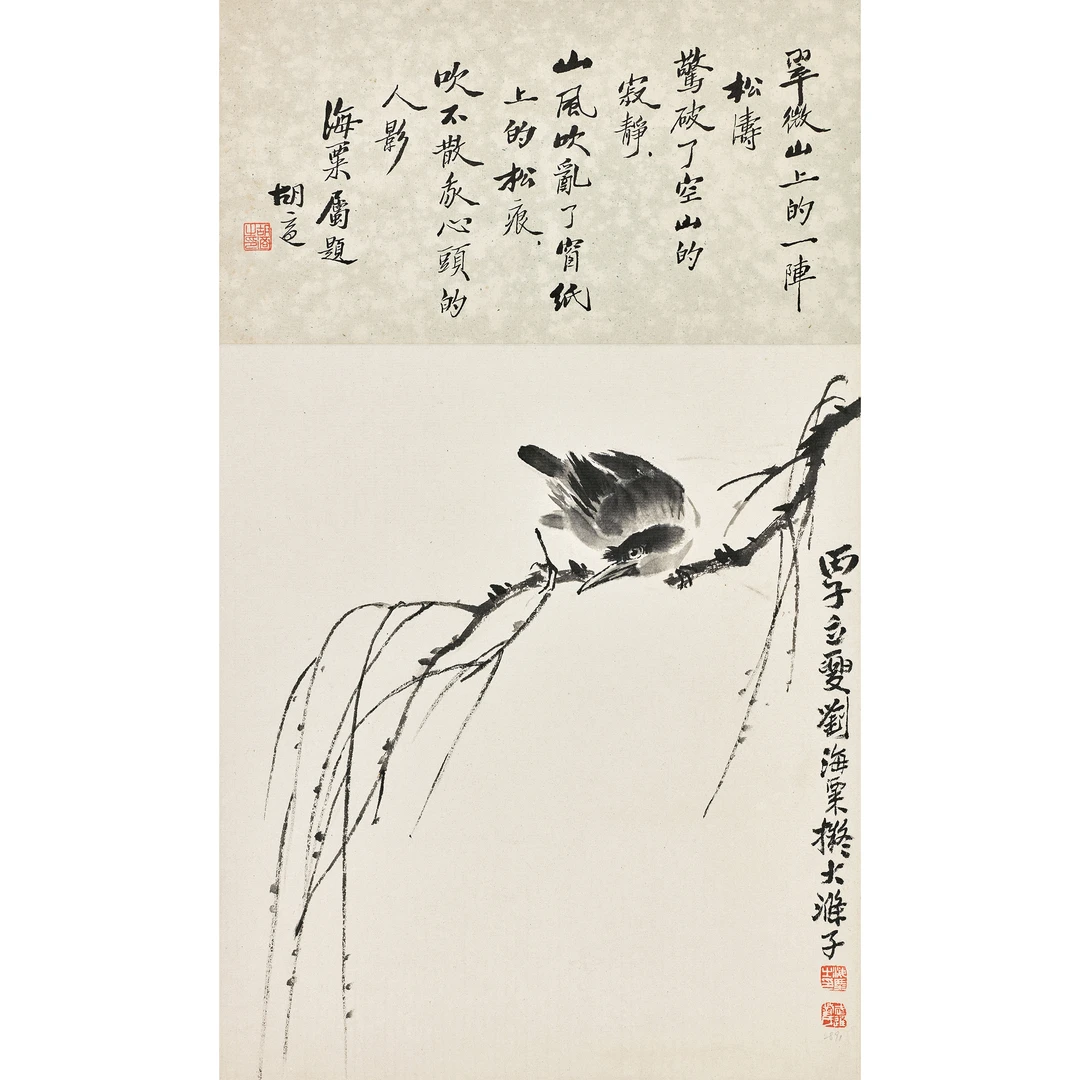 翠微山上的一陣
松濤
驚破了空山的
寂靜．
山風吹亂了窗紙
上的松痕．
吹不散我心頭的
人影
海粟屬題
胡適
胡適之印
丙子立夏劉海粟擬大滌子